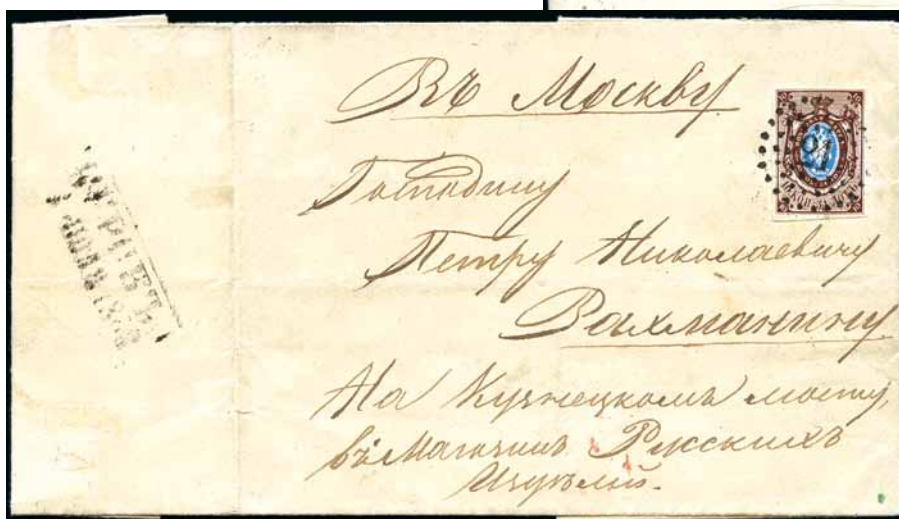 Въ Москву
Господину
Петру Николаевичу
Рахманину
На Кузнецкомъ мосту,
въ Магазинъ Русскихъ
Издѣлій.
21